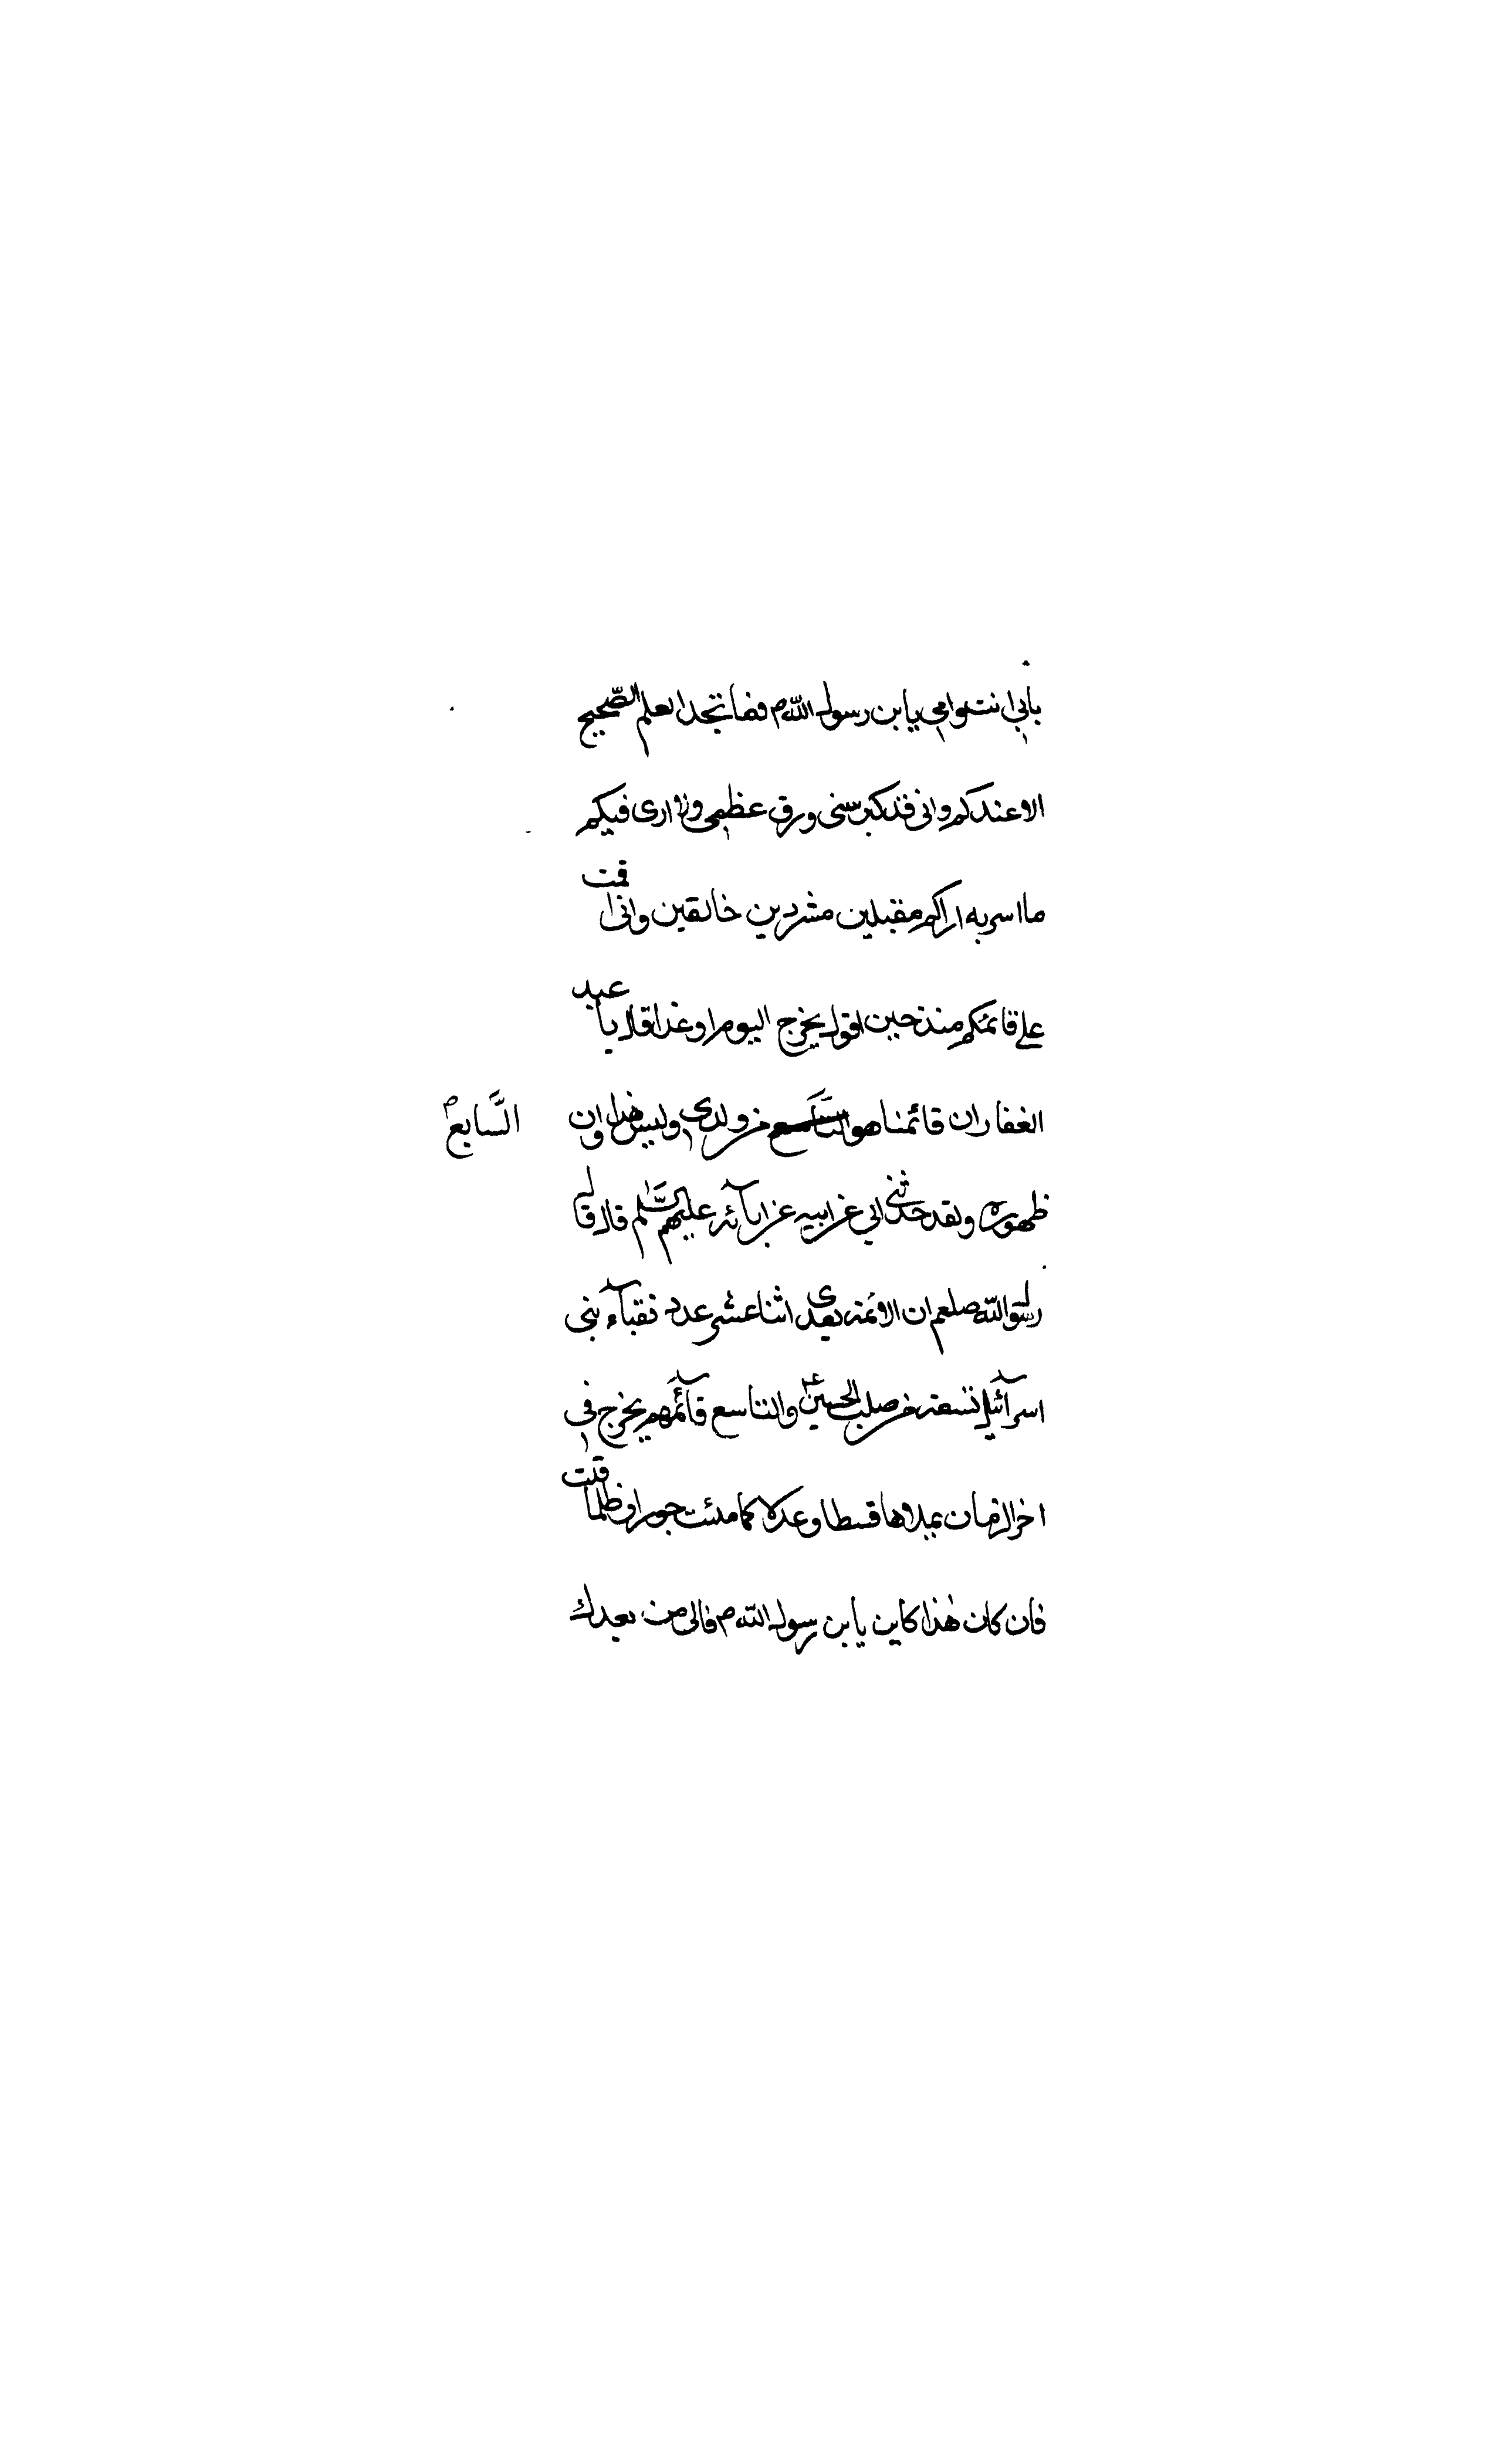 بابي انت وامي يابن رسول الله ص فما تجد العلم الصّحيح
الا عندكم واني قد كبر سني ورق عظمي ولا ارى فيكم
ما اسر به اراكم مقبلين مشردين خائفين واني اقمت
على قائمكم منذ حين اقول يخرج اليوم او غدا قال يا عبد
الغفار ان قائمنا هو السابع من ولدي وليس هذا اوان
السَّابع ص
ظهوره ولقد حدثني ابي عن ابيه عن ابآئه عليهم السّلام قال قال
رسول الله صلعم ان الائمة بعدي اثنا عشر عدد نقبآء بني
اسرآئيل تسعة من صلب الحسين ع والتاسع قآئمهم يخرج في
اخر الزمان يملاها قسطا وعدلا كما ملئت جورا وظلما قلت
فان كان هذا كاين يابن رسول الله ص فالى من بعدك